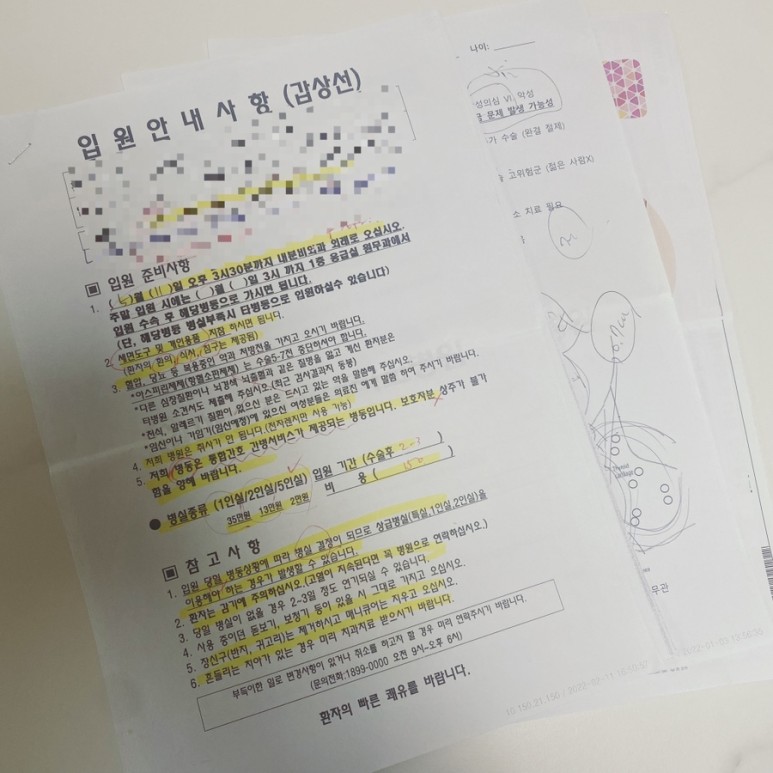 입원안내사항 (갑상선)
▣ 입원 준비사항
1. ( )월 (11)일 오후 3시30분까지 내분비외과 외래로 오십시오.
주말 입원 시에는 ( )월 ( )일 3시 까지 1층 응급실 원무과에서
입원 수속 후 해당병동으로 가시면 됩니다.
(단, 해당병동 병실부족시 타병동으로 입원하실수 있습니다)
2. 세면도구 및 개인용품 지참 하시면 됩니다.
(환자의 환의, 식사, 침구는 제공됨)
3. 혈압, 당뇨 등 복용중인 약과 처방전을 가지고 오시기 바랍니다.
*아스피린제제(항혈소판제제) 는 수술5-7전 중단하셔야 합니다.
*다른 심장질환이나 뇌경색 뇌출혈과 같은 질병을 앓고 계신 환자분은
타병원 소견서도 제출해 주십시오.(최근 검사결과지 동봉)
*천식, 알레르기 질환이 있으신 분은 드시고 있는 약을 말씀해 주십시오.
*임신이나 가임기(임신예정)에 있으신 여성분들은 의료진 에게 말씀 하여 주시기 바랍니다.
4. 저희 병원은 취사가 안 됩니다.(전자렌지만 사용 가능)
5. 저희 병동은 통합간호 간병서비스가 제공되는 병동입니다. 보호자분 상주가 불가
함을 양해 바랍니다.
● 병실종류 (1인실/2인실/5인실) 입원 기간 (수술후 2-3 )
35만원 13만원 2만원 비 용 ( 150 )
▣ 참고사항
1. 입원 당일 병동상황에 따라 병실 결정이 되므로 상급병실(특실,1인실,2인실)을
이용해야 하는 경우가 발생할 수 있습니다.
2. 환자는 감기에 주의하십시오.(고열이 지속된다면 꼭 병원으로 연락하십시오.)
3. 당일 병실이 없을 경우 2-3일 정도 연기되실 수 있습니다.
4. 사용 중이던 돋보기, 보청기 등이 있을 시 그대로 가지고 오십시오.
5. 장신구(반지, 귀고리)는 제거하시고 매니큐어는 지우고 오십시오.
6. 흔들리는 치아가 있는 경우 미리 치과치료 받으시기 바랍니다.
부득이한 일로 변경사항이 있거나 취소를 하고자 할 경우 미리 연락주시기 바랍니다.
(문의전화:1899-0000 오전 9시~오후 6시)
환자의 빠른 쾌유를 바랍니다.
나이:
성의심 VI 악성
문제 발생 가능성
가 수술 (완결 절제)
고위험군 (젊은 사람X)
소 치료 필요
0.7cm
무관